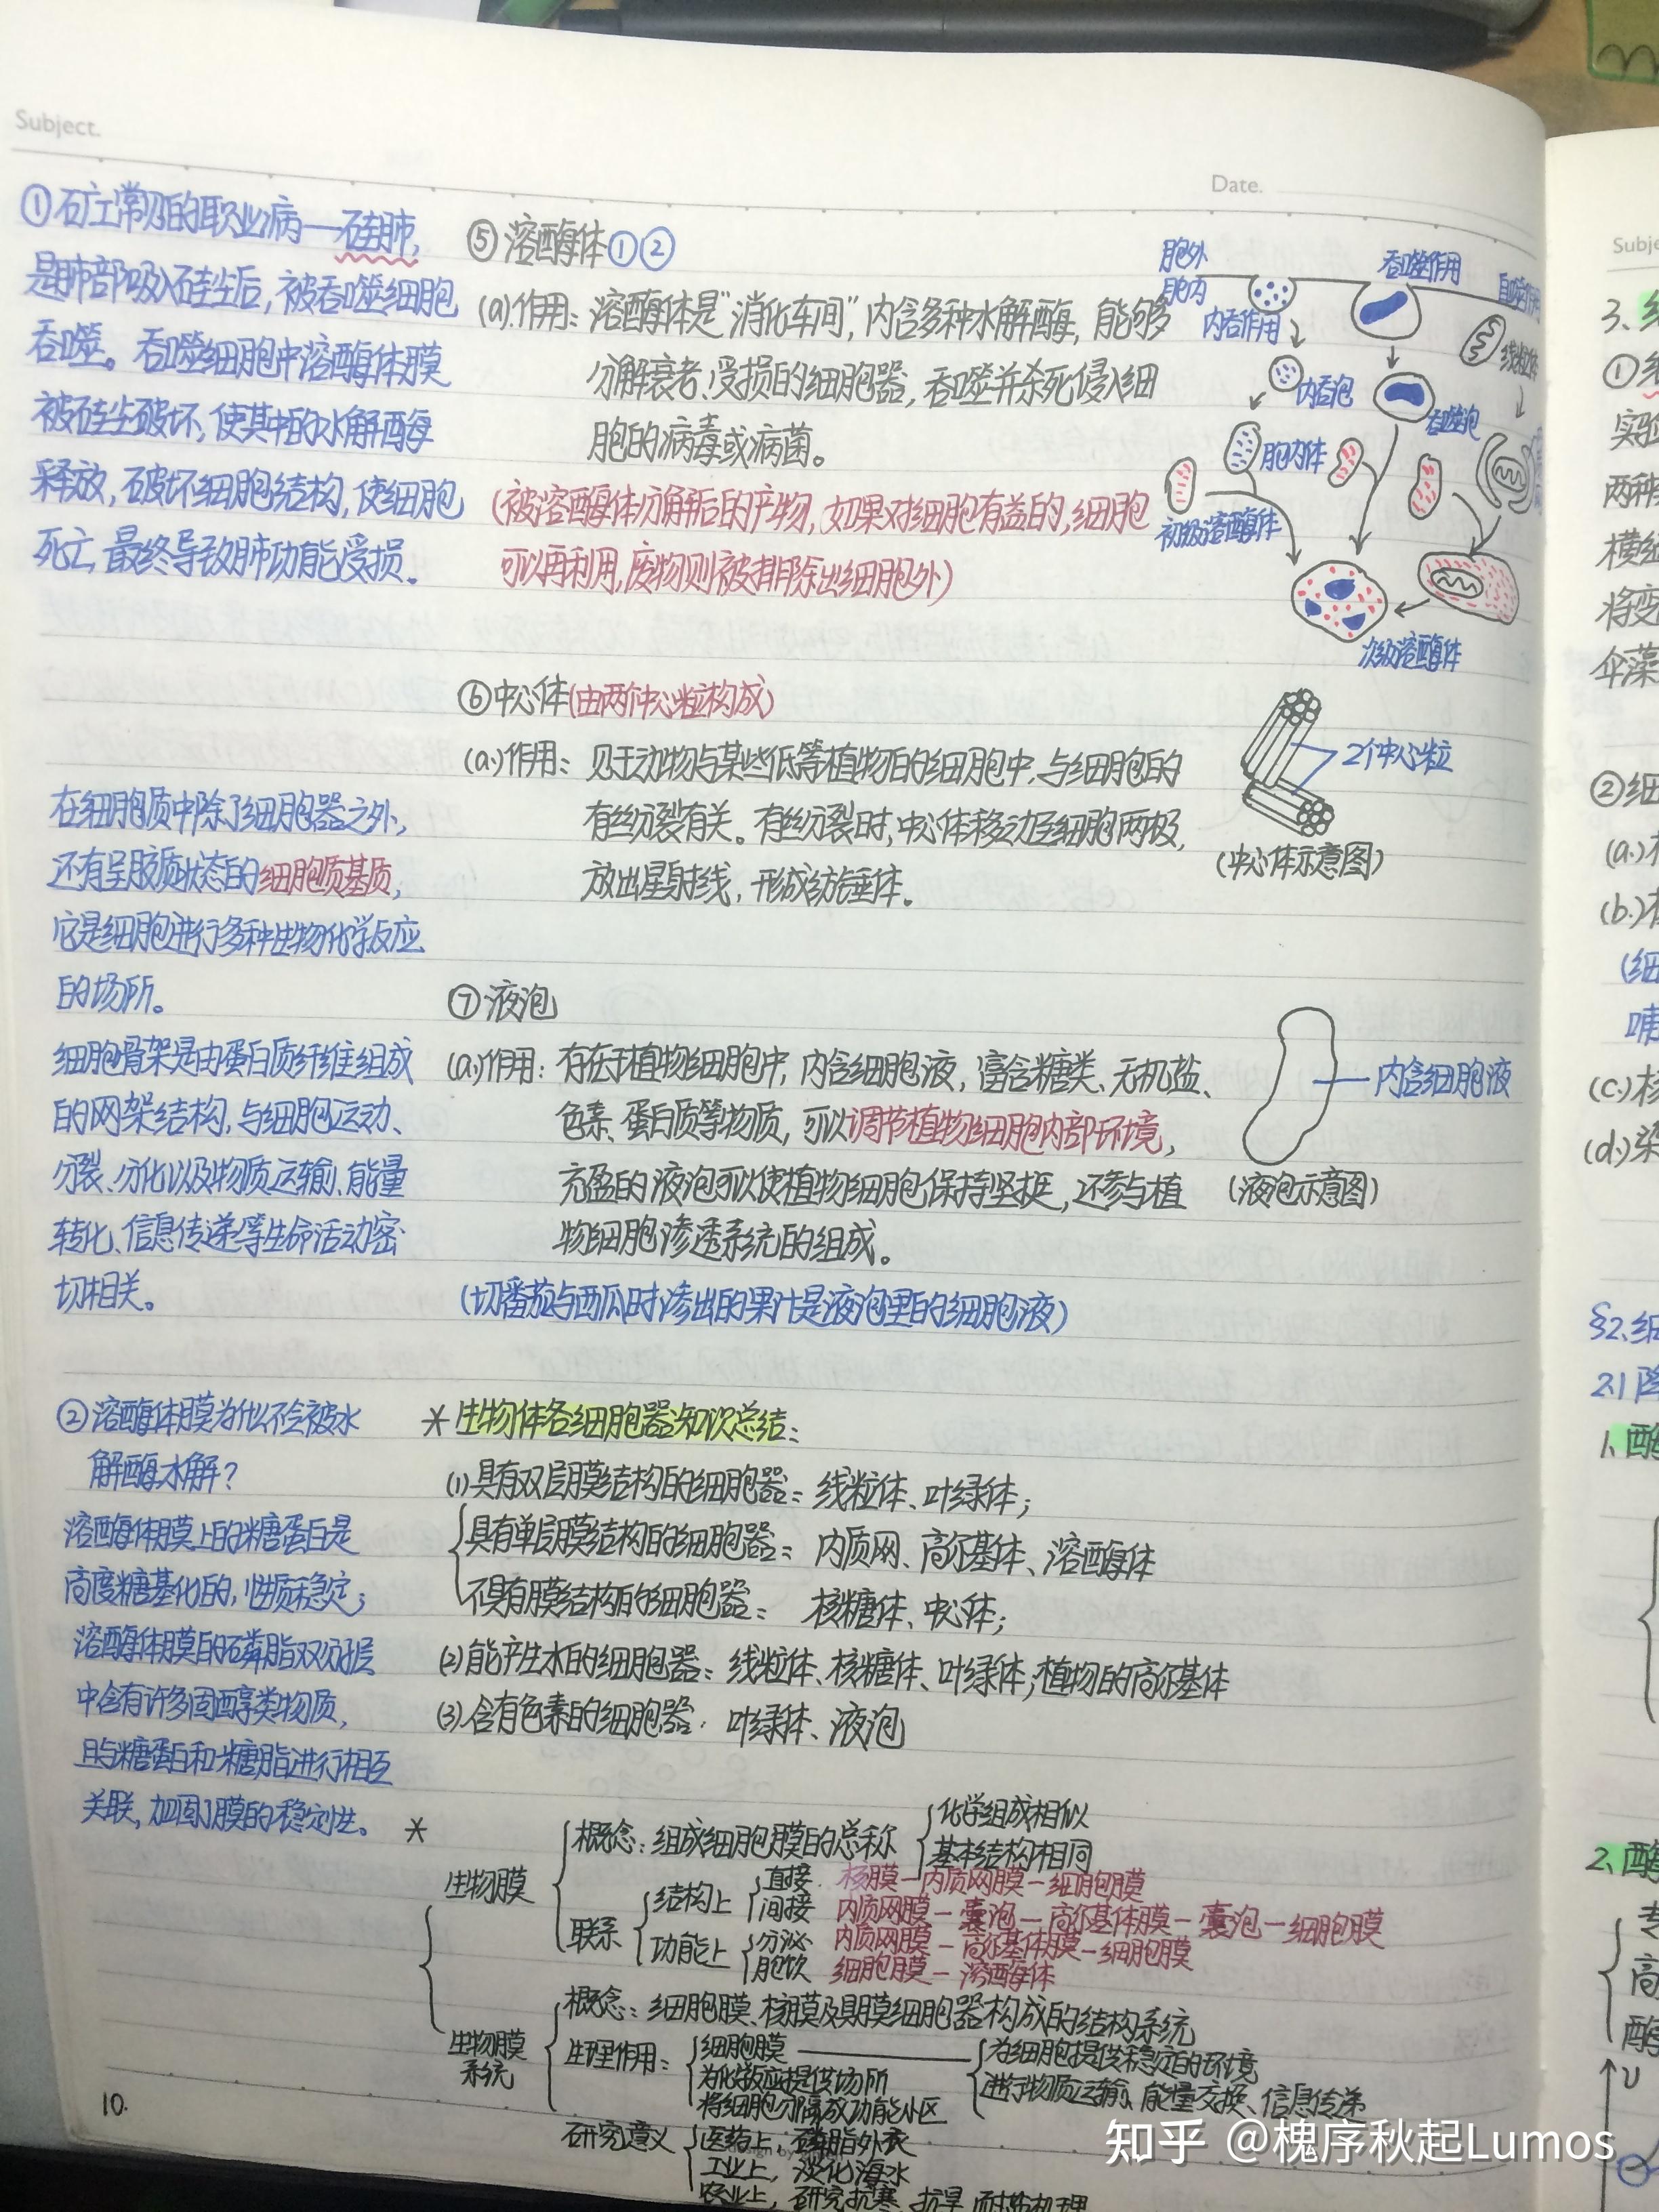 Subject.
Date.
①矿工常见的职业病—硅肺,
是肺部吸入硅尘后,被吞噬细胞
吞噬。吞噬细胞中溶酶体膜
被硅尘破坏,使其中的水解酶
释放,破坏细胞结构,使细胞
死亡,最终导致肺功能受损.
⑤溶酶体①②
(a).作用:溶酶体是"消化车间",内含多种水解酶,能够
分解衰老、受损的细胞器,吞噬并杀死侵入细
胞的病毒或病菌。
(被溶酶体分解后的产物,如果对细胞有益的,细胞
可以再利用,废物则被排除出细胞外)
胞外
胞内
内吞作用
吞噬作用
内吞泡
线粒体
吞噬泡
胞内体
初级溶酶体
次级溶酶体
⑥中心体(由两个中心粒构成)
(a.)作用:见于动物与某些低等植物的细胞中,与细胞的
有丝分裂有关。有丝分裂时,中心体移动至细胞两极,
放出星射线,形成纺锤体.
2个中心粒
(中心体示意图)
在细胞质中除了细胞器之外,
还有呈胶质状态的细胞质基质,
它是细胞进行多种生物化学反应
的场所。
细胞骨架是由蛋白质纤维组成
的网架结构,与细胞运动、
分裂、分化以及物质运输、能量
转化、信息传递等生命活动密
切相关。
⑦液泡
(a.)作用:存在于植物细胞中,内含细胞液,富含糖类、无机盐、
色素、蛋白质等物质,可以调节植物细胞内部环境,
充盈的液泡可以使植物细胞保持坚挺,还参与植
物细胞渗透系统的组成。
(切番茄与西瓜时渗出的果汁是液泡里的细胞液)
内含细胞液
(液泡示意图)
②溶酶体膜为什么不会被水
解酶水解?
溶酶体膜上的糖蛋白是
高度糖基化的,性质稳定;
溶酶体膜的磷脂双分子层
中含有许多固醇类物质,
且与糖蛋白和糖脂进行相互
关联,加固了膜的稳定性。
*生物体各细胞器知识总结:
(1)具有双层膜结构的细胞器:线粒体、叶绿体;
具有单层膜结构的细胞器:内质网、高尔基体、溶酶体
不具有膜结构的细胞器:核糖体、中心体;
(2)能产生水的细胞器:线粒体、核糖体、叶绿体;植物的高尔基体
(3).含有色素的细胞器:叶绿体、液泡
*
生物膜
概念:组成细胞膜的总称
化学组成相似
基本结构相同
联系
结构上
直接 核膜—内质网膜—细胞膜
间接 内质网膜—囊泡—高尔基体膜—囊泡—细胞膜
功能上
分泌 内质网膜—高尔基体膜—细胞膜
胞饮 细胞膜—溶酶体
生物膜
系统
概念:细胞膜、核膜及具膜细胞器构成的结构系统
生理作用:
细胞膜
为细胞提供稳定的环境
进行物质运输、能量交换、信息传递
为化学反应提供场所
将细胞分隔成功能小区
研究意义
医药上,磷脂外衣
工业上,淡化海水
农业上,研究抗寒、抗旱、耐盐机理
10.
Subje
3、
①
实验
两种
横
将变
伞藻
②细
(a.)
(b.)
(细
哺
(c.)核
(d.)染
§2.细
2.1
1、酶
2、酶
专
高
酶
υ
知乎 @槐序秋起Lumos